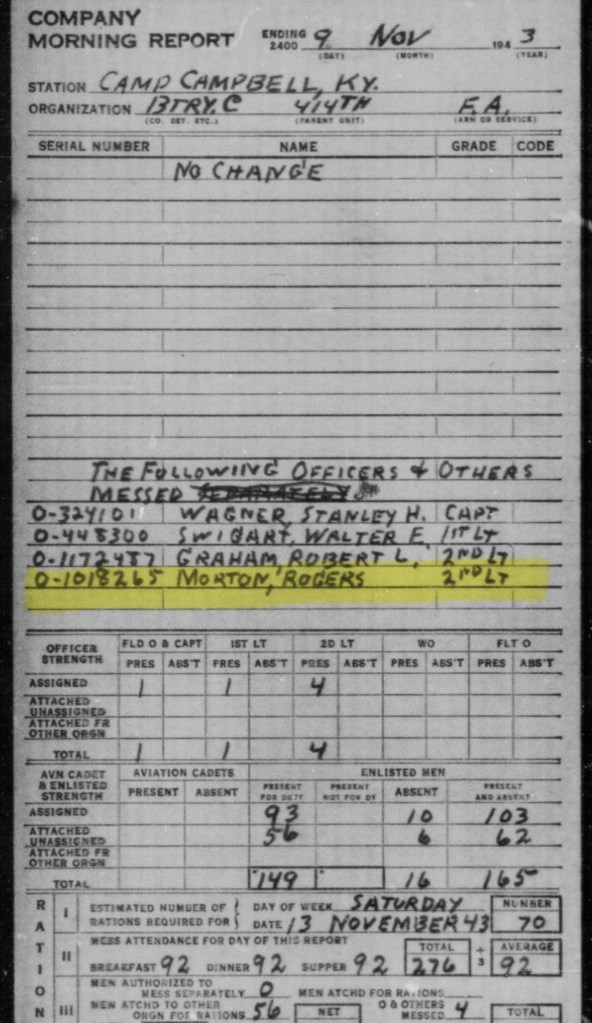 COMPANY
MORNING REPORT ENDING 2400 9 NOV 1943
(DAY) (MONTH) (YEAR)
STATION CAMP CAMPBELL, KY.
ORGANIZATION BTRY. C 414TH F.A.
(CO. DET. ETC.) (PARENT UNIT) (ARM OR SERVICE)
SERIAL NUMBER NAME GRADE CODE
NO CHANGE
THE FOLLOWIING OFFICERS & OTHERS
MESSED
O-324101 WAGNER, STANLEY H. CAPT
O-448300 SWIGART, WALTER E. 1ST LT
O-1172487 GRAHAM, ROBERT L. 2ND LT
O-1018265 MORTON, ROGERS 2ND LT
OFFICER STRENGTH FLD O & CAPT 1ST LT 2D LT WO FLT O
PRES ABS'T PRES ABS'T PRES ABS'T PRES ABS'T PRES ABS'T
ASSIGNED 1 1 4
ATTACHED UNASSIGNED
ATTACHED FR OTHER ORGN
TOTAL 1 1 4
AVN CADET & ENLISTED STRENGTH AVIATION CADETS ENLISTED MEN
PRESENT ABSENT PRESENT FOR DUTY PRESENT NOT FOR DY ABSENT PRESENT AND ABSENT
ASSIGNED 93 10 103
ATTACHED UNASSIGNED 56 6 62
ATTACHED FR OTHER ORGN
TOTAL 149 16 165
RATION
I ESTIMATED NUMBER OF RATIONS REQUIRED FOR DAY OF WEEK SATURDAY NUMBER
DATE 13 NOVEMBER 43 70
II MESS ATTENDANCE FOR DAY OF THIS REPORT TOTAL ÷ AVERAGE
BREAKFAST 92 DINNER 92 SUPPER 92 276 3 92
III MEN AUTHORIZED TO MESS SEPARATELY 0 MEN ATCHD FOR RATIONS
MEN ATCHD TO OTHER ORGN FOR RATIONS 56 NET O & OTHERS MESSED 4 TOTAL